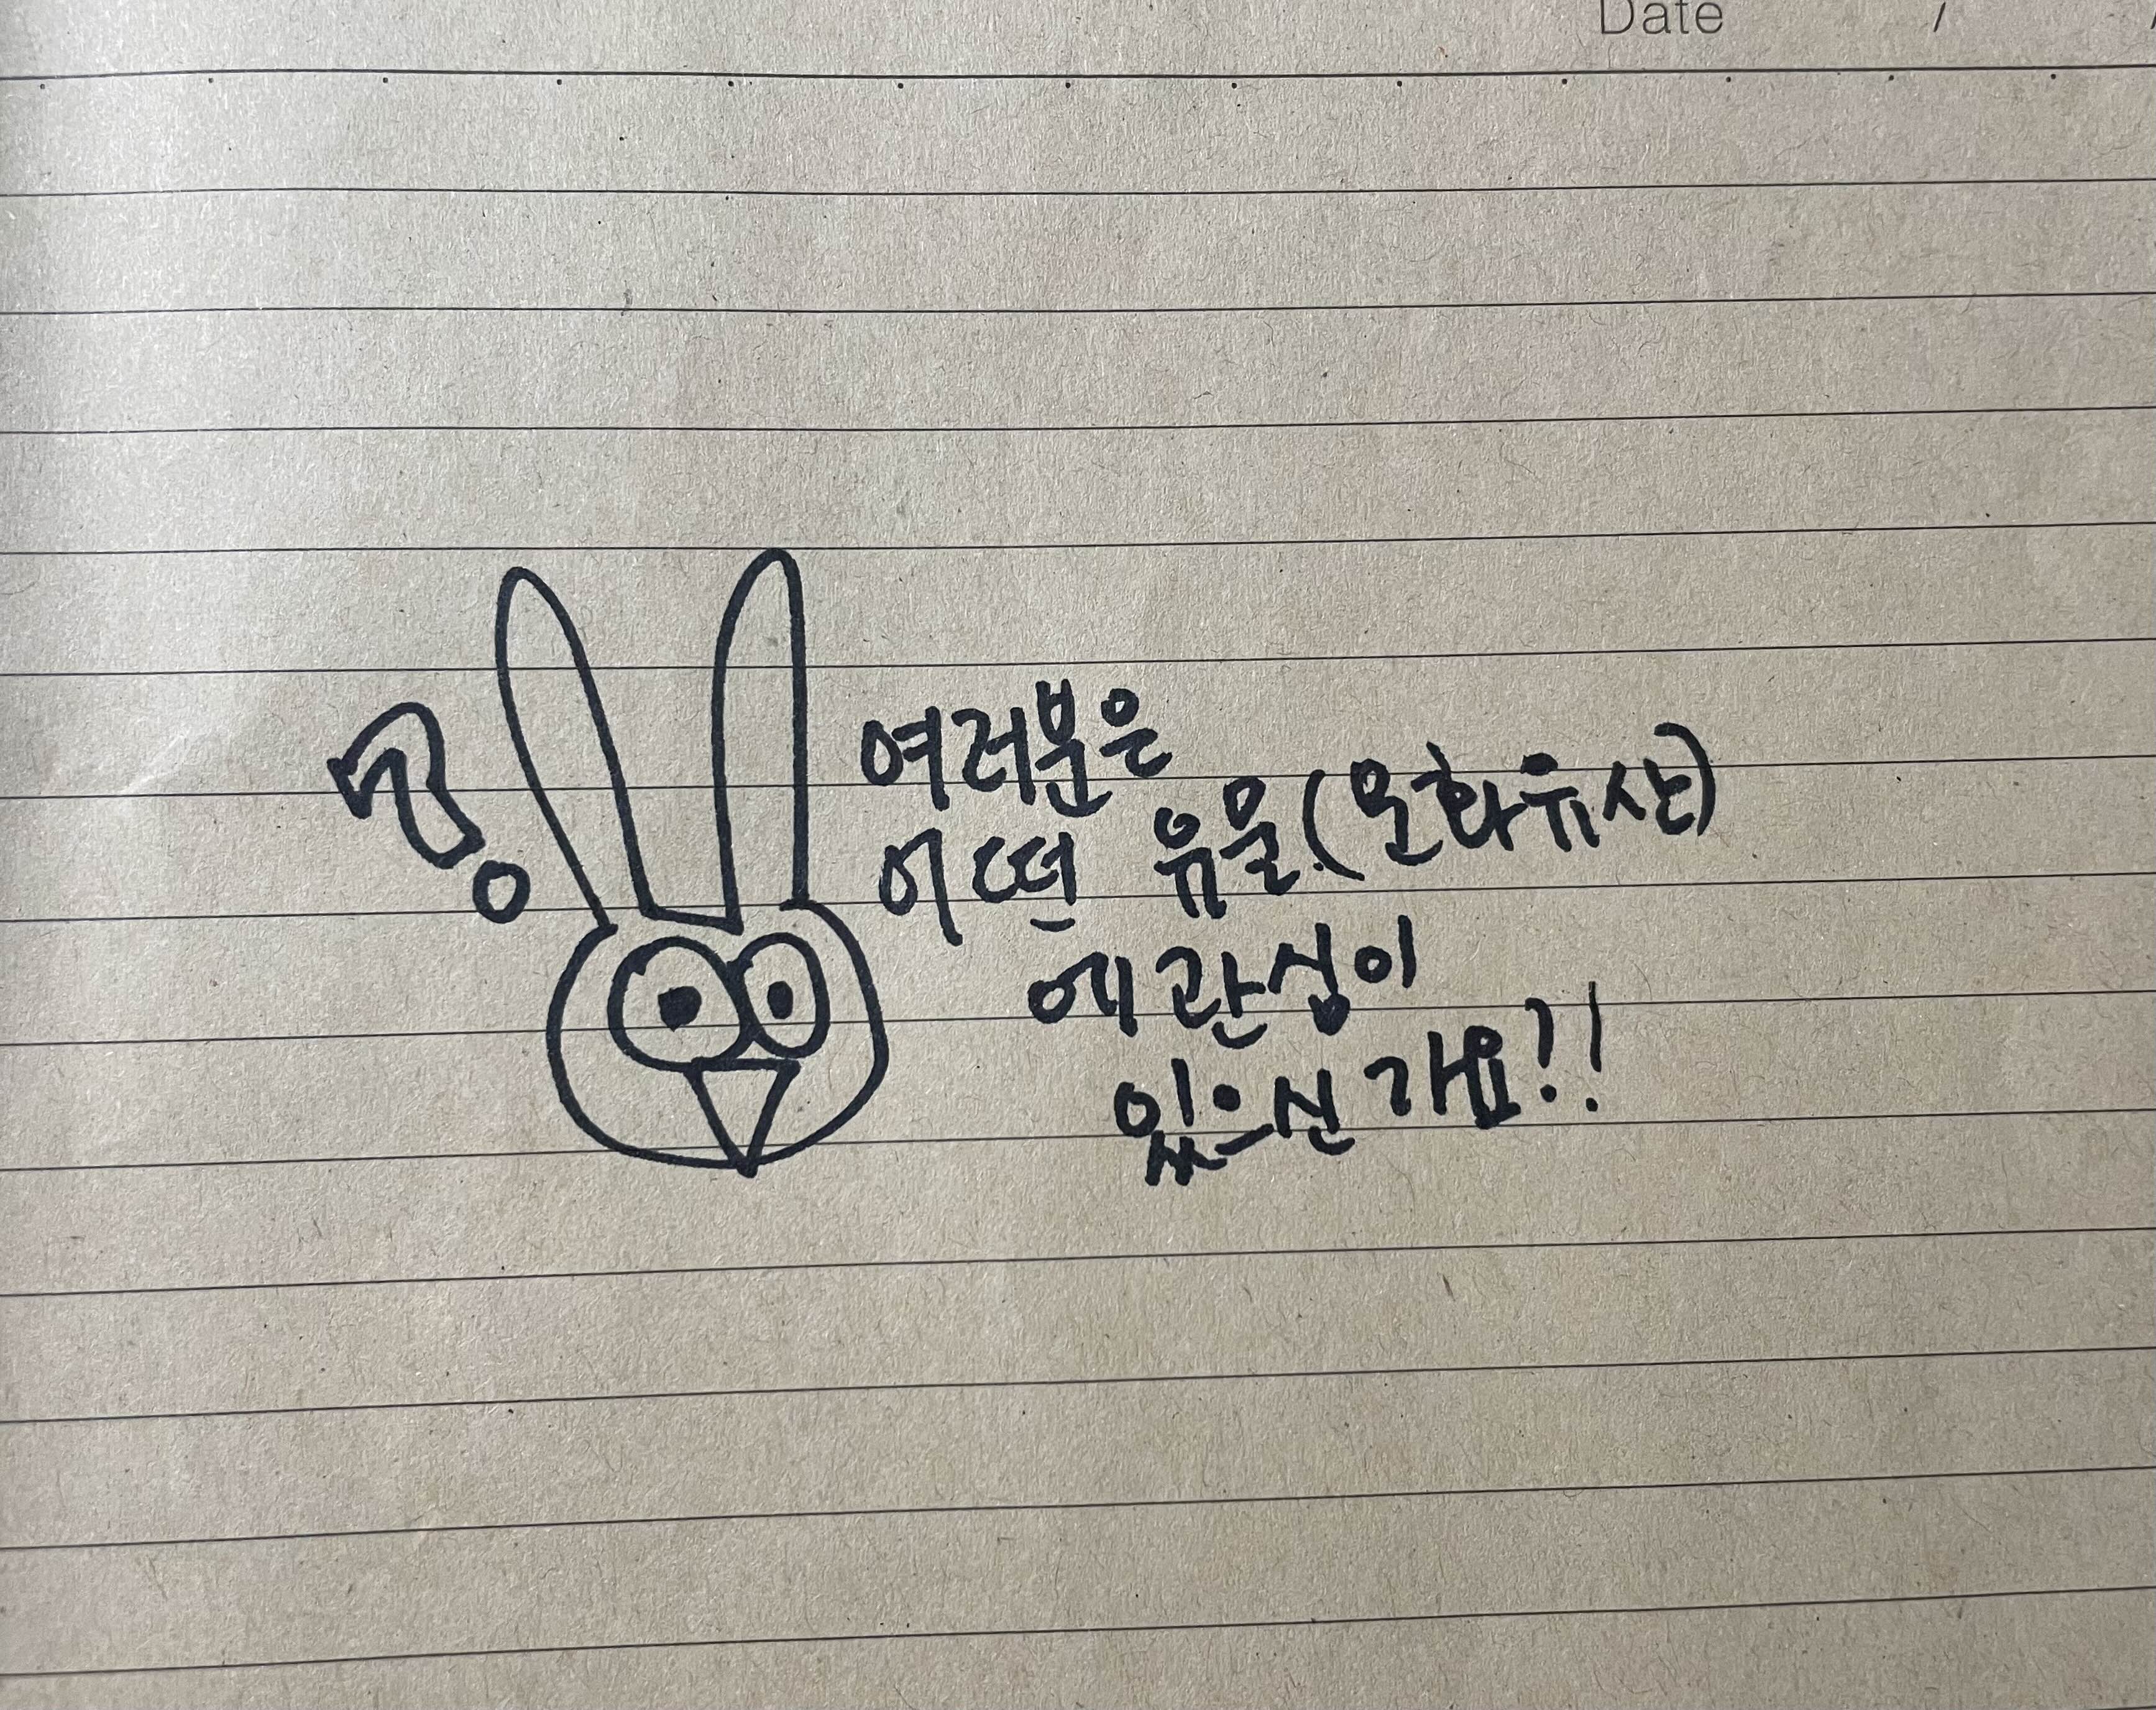 Date / /
여러분은
어떤 유물(문화유산)
에 관심이
있으신가요?!